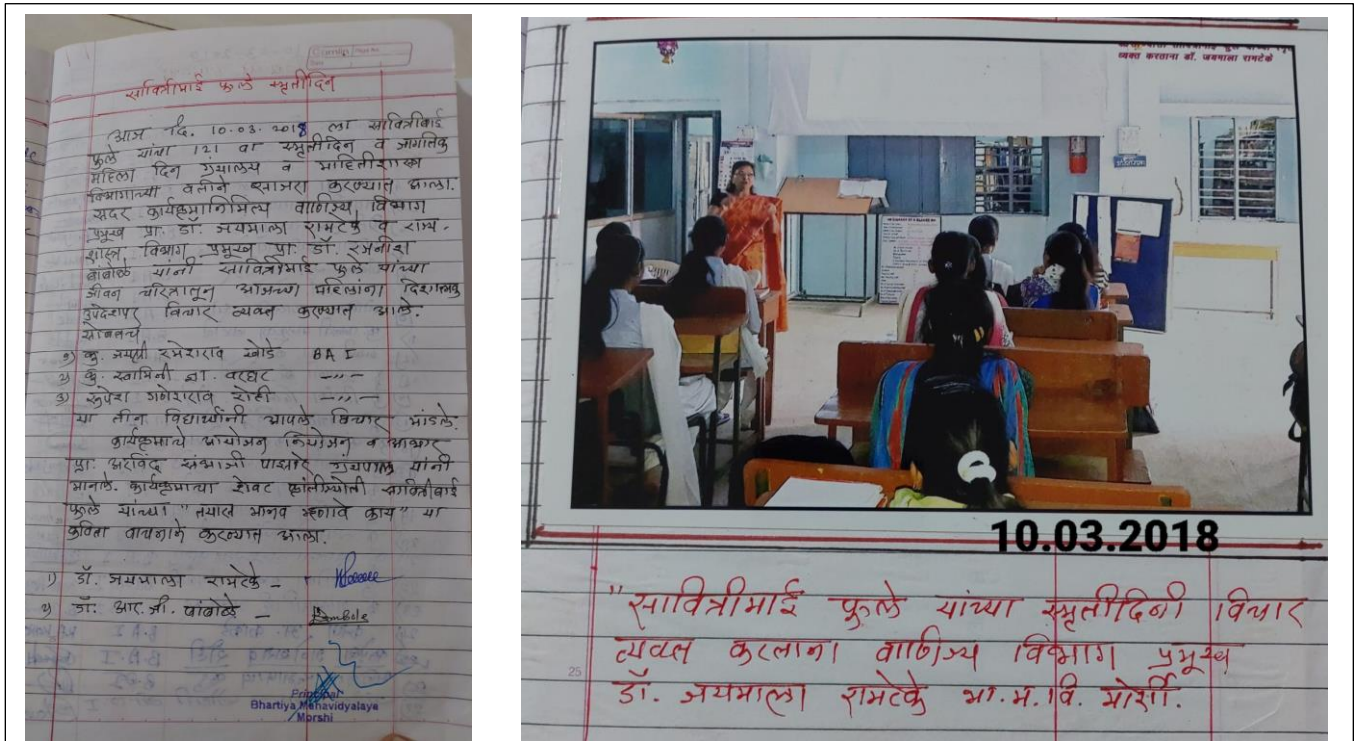 सावित्रीमाई फुले स्मृतीदिन
आज दि. 10.03.2018 ला सावित्रीबाई
फुले यांचा 121 वा स्मृतीदिन व जागतिक
महिला दिन ग्रंथालय व माहितीशास्त्र
विभागाच्या वतीने साजरा करण्यात आला.
सदर कार्यक्रमानिमित्य वाणिज्य विभाग
प्रमुख प्रा. डॉ. जयमाला रामटेके व राज्य-
शास्त्र विभाग प्रमुख प्रा. डॉ. रजनीश
बांबोळे यांनी सावित्रीमाई फुले यांच्या
जीवन चरित्रातून आजच्या महिलांना दिशात्मक
उपदेशपर विचार व्यक्त करण्यात आले.
सोबतच
१) कु. जयश्री रमेशराव खोडे BA I
२) कु. स्वामिनी ज्ञा. वरघट —„—
३) रुपेश गणेशराव रोही —„—
या तीन विद्यार्थ्यांनी आपले विचार मांडले.
कार्यक्रमाचे आयोजन नियोजन व आभार
प्रा. अरविंद संभाजी पाझारे ग्रंथपाल यांनी
मानले. कार्यक्रमाचा शेवट क्रांतीज्योती सावित्रीबाई
फुले यांच्या "तयास मानव म्हणावे काय" या
कविता वाचनाने करण्यात आला.
1) डॉ. जयमाला रामटेके -
2) डॉ. आर. जी. बांबोळे - Bambole
Principal
Bhartiya Mahavidyalaya
Morshi
व्यक्त करताना डॉ. जयमाला रामटेके
10.03.2018
"सावित्रीमाई फुले यांच्या स्मृतीदिनी विचार
व्यक्त करताना वाणिज्य विभाग प्रमुख
25
डॉ. जयमाला रामटेके भा.म.वि. मोर्शी.